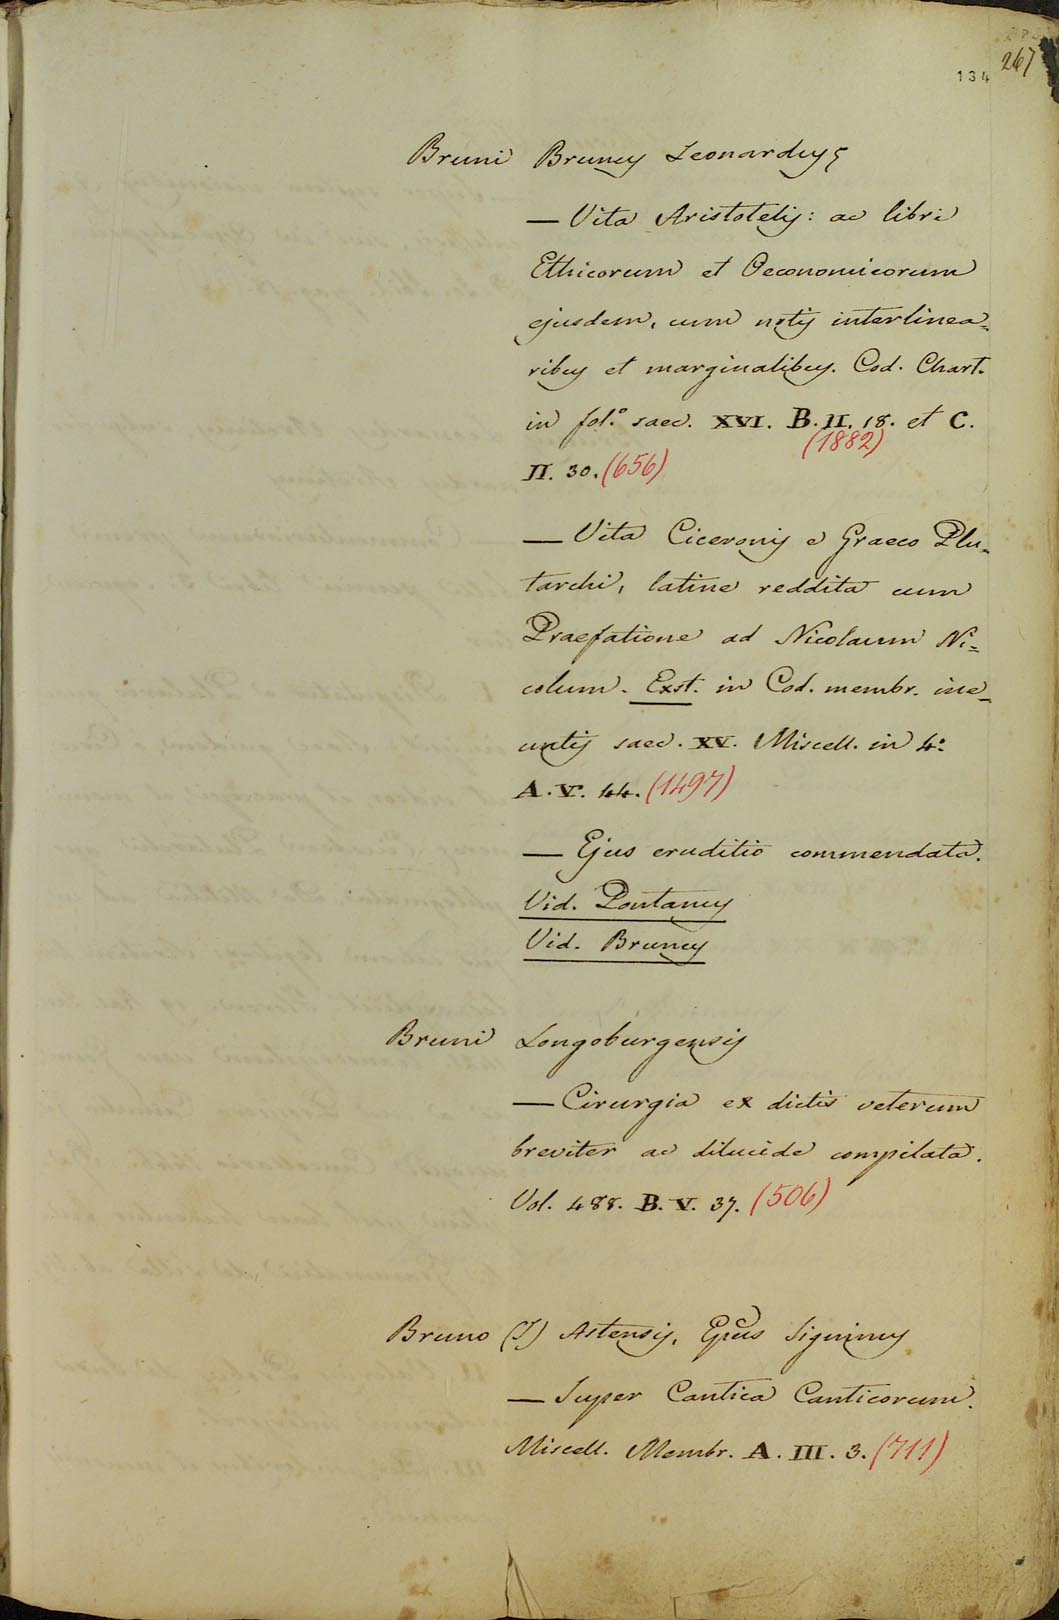 267
134
Bruni Brunus Leonardus
— Vita Aristotelis: ac libri
Ethicorum et Oeconomicorum
ejusdem, cum notis interlinea=
ribus et marginalibus. Cod. Chart.
in fol.° saec. XVI. B. II. 18. et C.
(1882)
II. 30. (656)
— Vita Ciceronis e Graeco Plu=
tarchi, latine reddita cum
Praefatione ad Nicolaum Ni=
colum. Exst. in Cod. membr. ine_
untis saec. XV. Miscell. in 4.°
A. V. 44. (1497)
— Ejus eruditio commendata.
Vid. Pontanus
Vid. Brunus
Bruni Longoburgensis
— Cirurgia ex dictis veterum
breviter ac dilucide compilata.
Vol. 488. B. V. 37. (506)
Bruno (S) Astensis, Epus Signinus
— Super Cantica Canticorum.
Miscell. Membr. A. III. 3. (711)